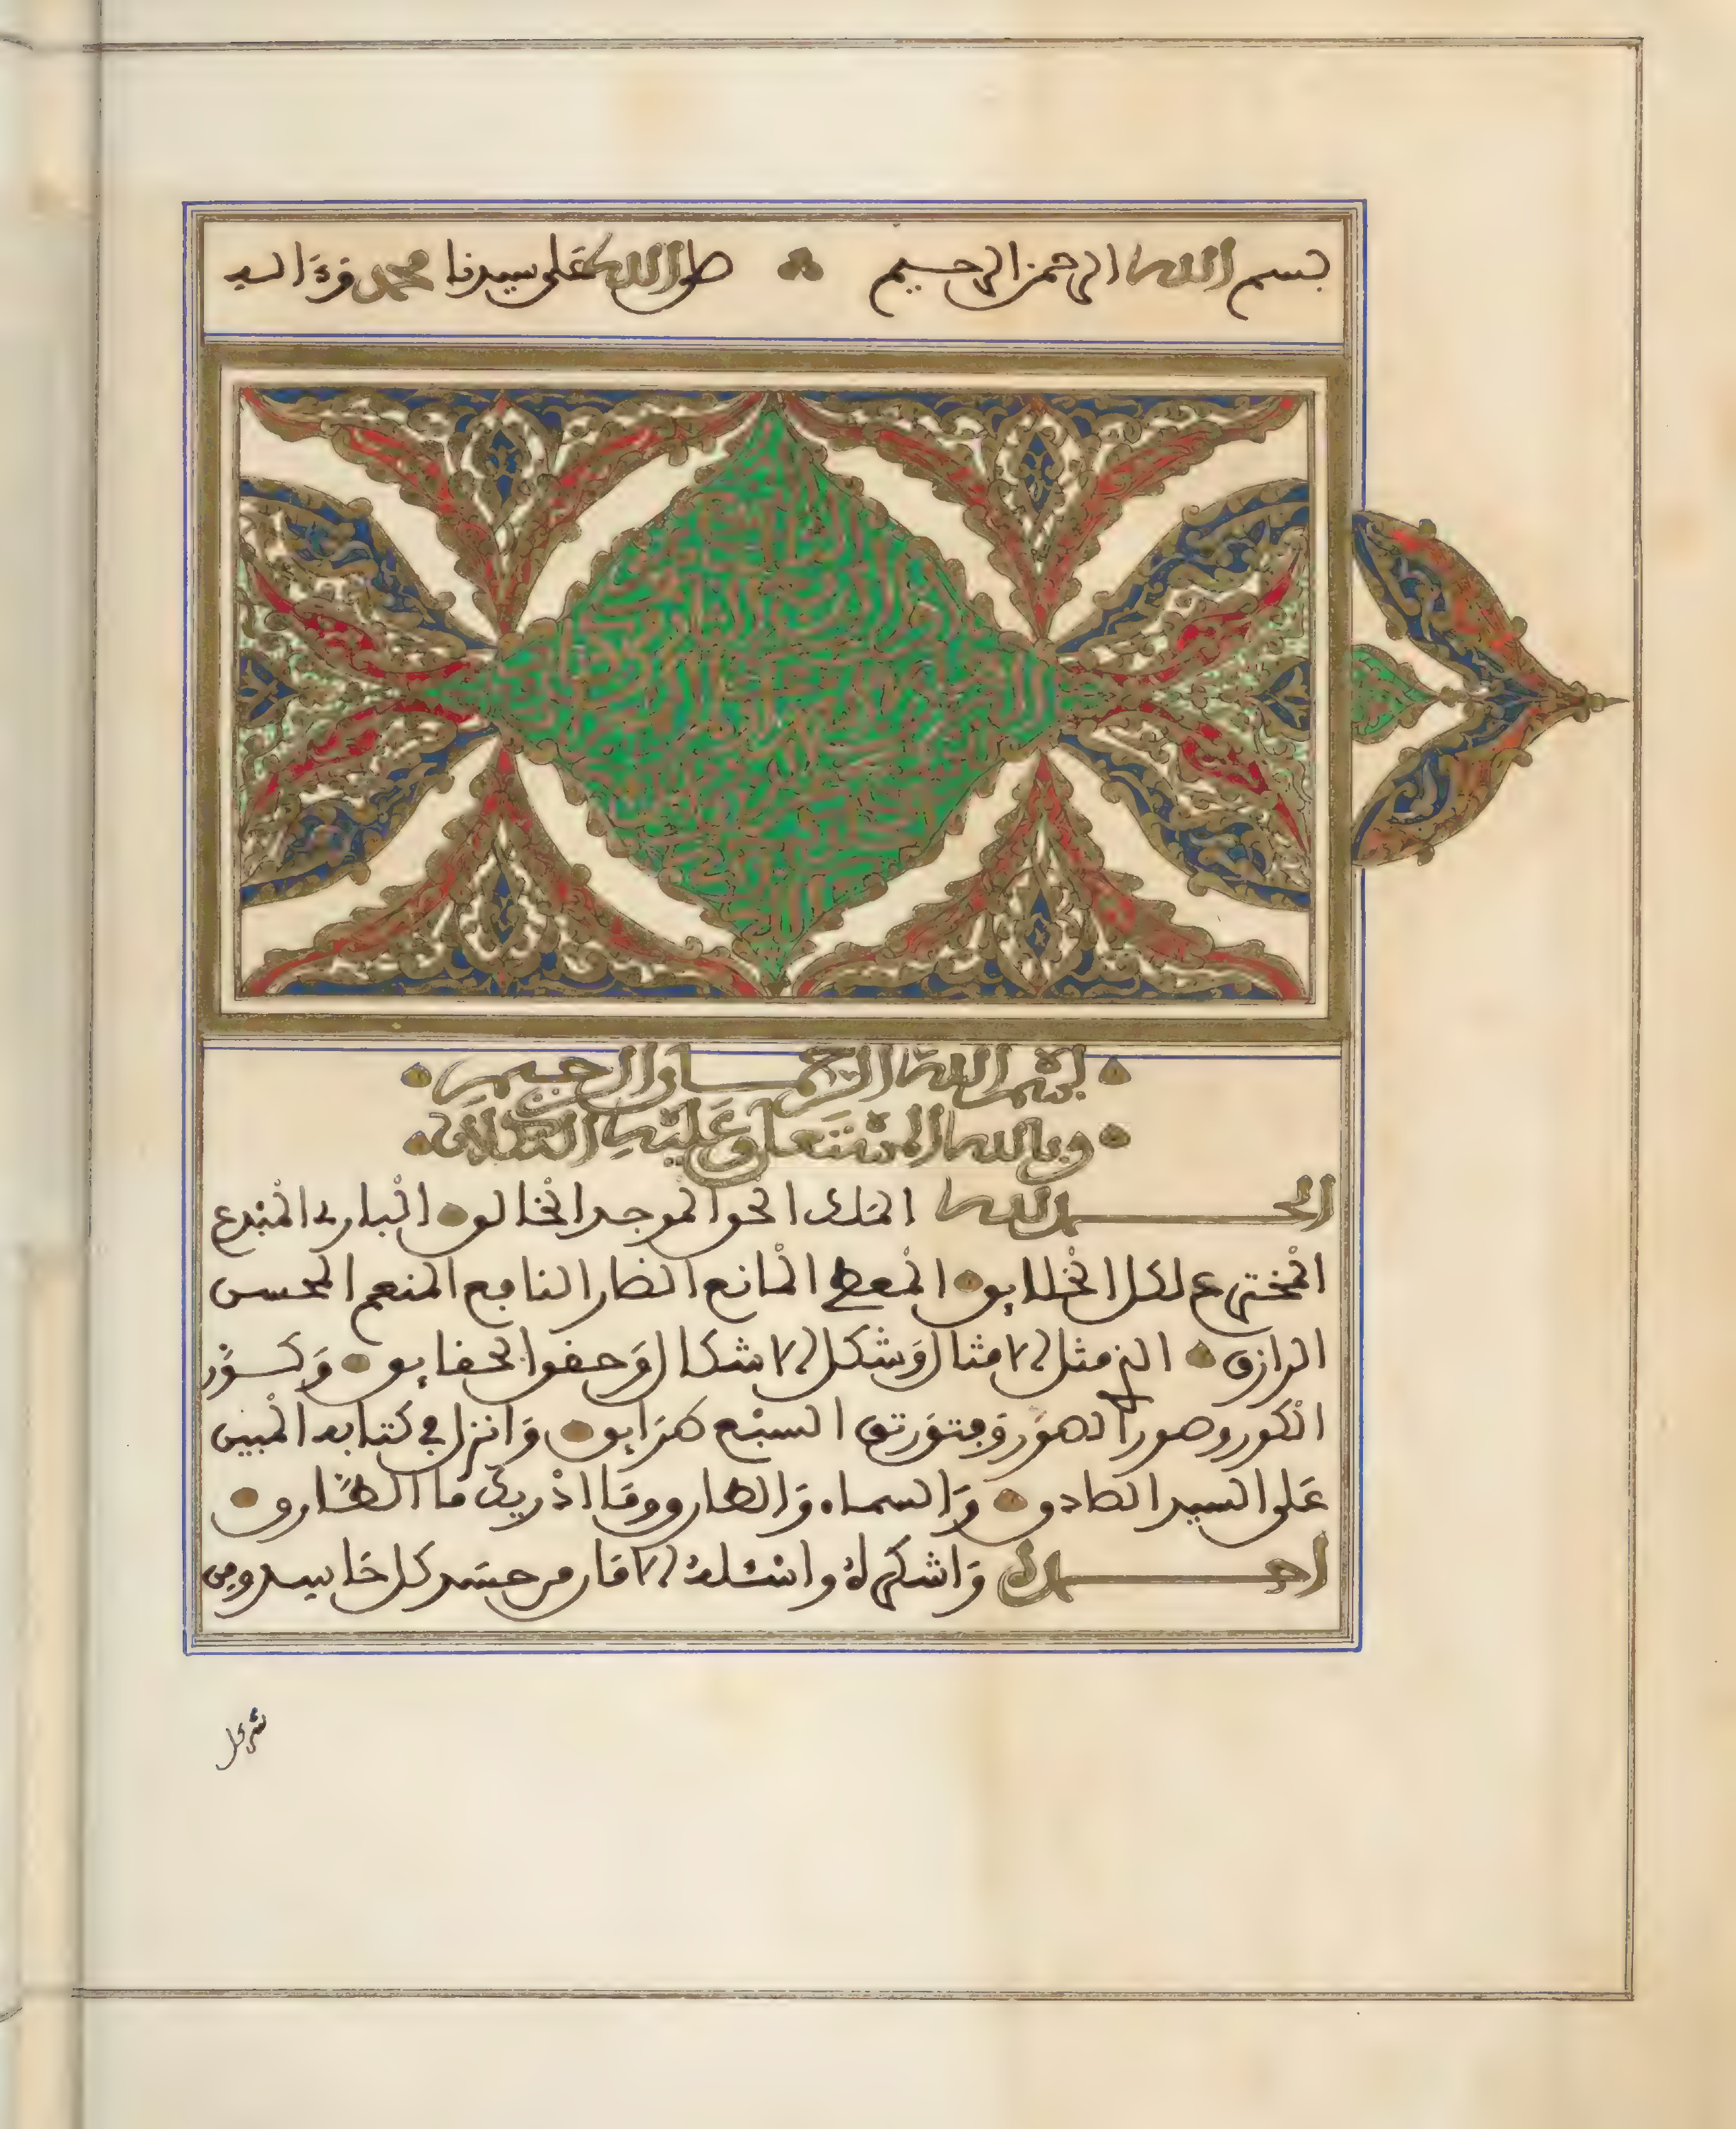 بسم الله الرحمن الرحيم صلى الله على سيدنا محمد وءاله
بسم الله الرحمن الرحيم
وبالله المستعان وعليه التكلان
الحمد لله الملك الحق الموجد الخالق البارئ المبدع
المخترع لكل الخلايق المعطي المانع الضار النافع المنعم المحسن
الرازق الذي مثل الامثال وشكل الاشكال وحقق الحقايق وكور
الكور وصور الصور وفتق رتق السبع طرايق وانزل في كتابه المبين
على السيد الصادق والسماء والطارق وما ادريك ما الطارق
احمده واشكره واسئله الامان من حسد كل حاسد ومن
شر كل